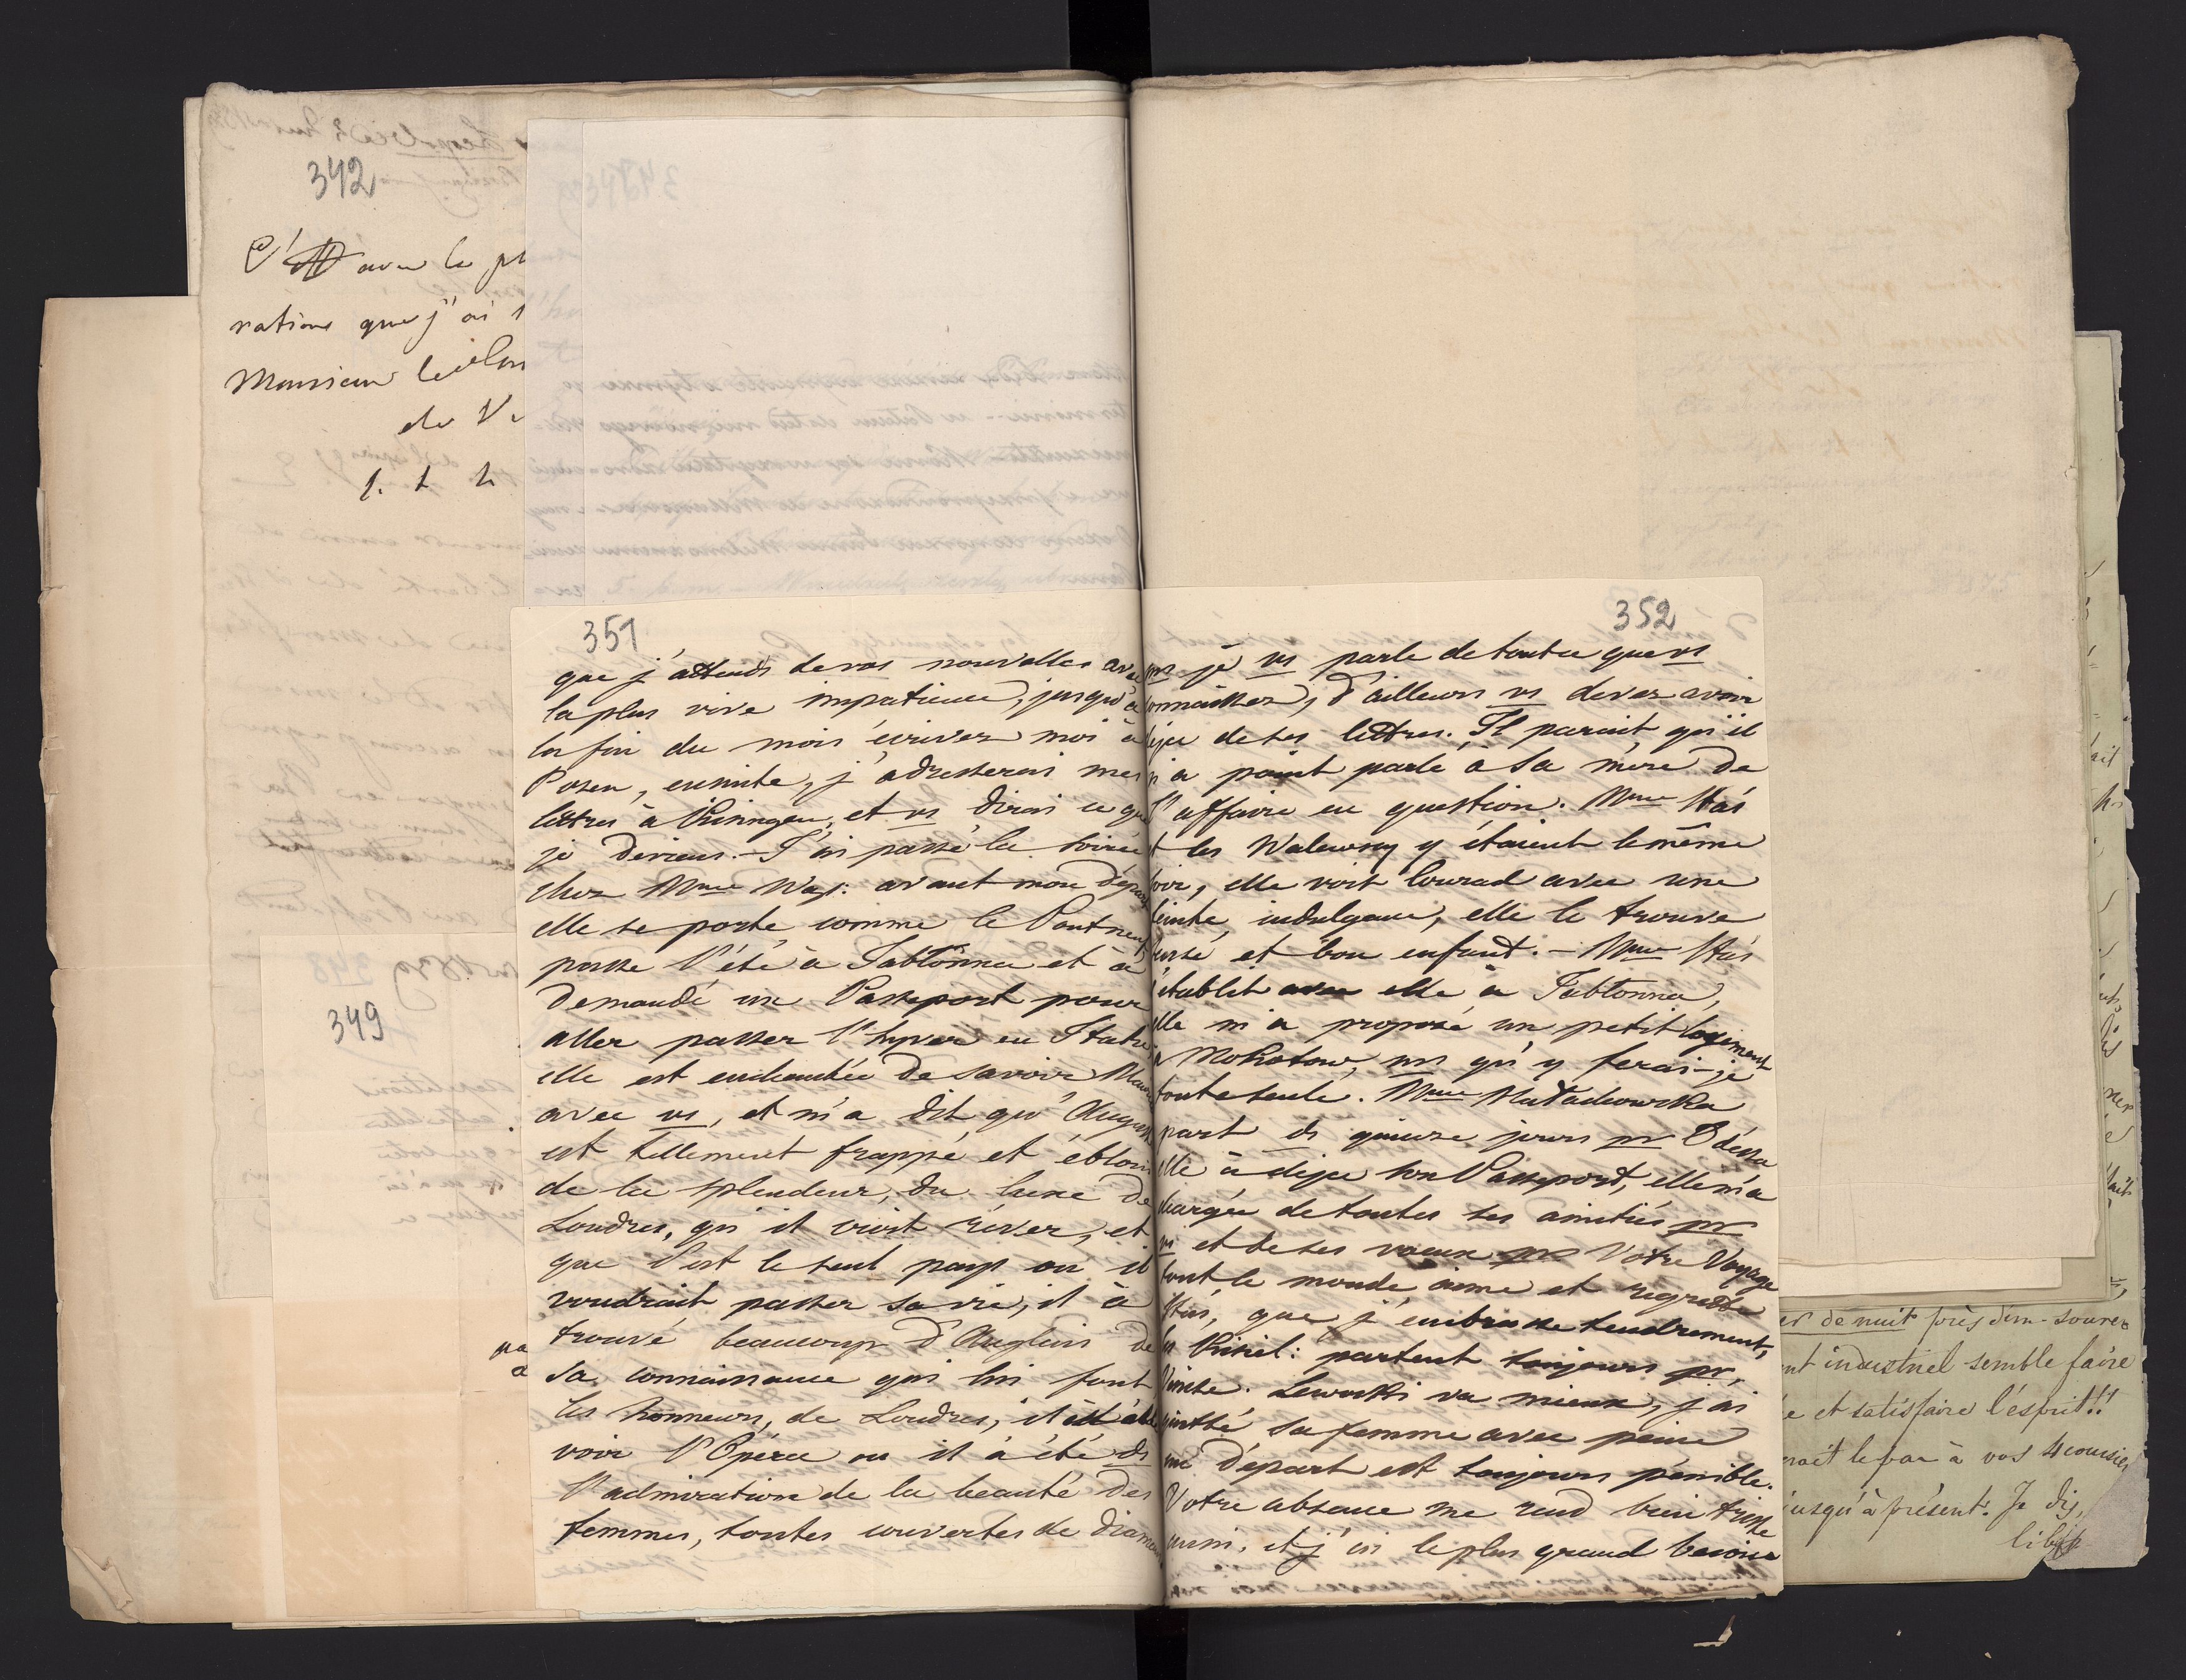 342
C'est avec le pl
rations que j'ai
Monsieur le Con
de V
349
351
que j'attends de vos nouvelles avec
la plus vive impatience, jusqu'à
la fin du mois écrivez moi à
Posen, ensuite, j'adresserai mes
lettres à Kissingen, et vs dirai ce que
je deviens. – J'ai passé la soirée
chez Mme Wąs: avant mon départ
elle se porte comme le Pont neuf,
passe l'été à Jabłonna et à
demandé un Passeport pour
aller passer l'hyver en Italie,
elle est enchantée de savoir
avec vs, et m'a dit qu'Auguste
est tellement frappé et ébloui
de la splendeur, du luxe de
Londres, qu'il croit rêver, et
que c'est le seul pays ou il
voudrait passer sa vie, il à
trouvé beaucoup d'Anglais de
sa connaissance qui lui font
les honneurs, de Londres, il
voir l'Opéra ou il à été ds
l'admiration de la beauté des
femmes, toutes couvertes de diamens
352
je vs parle de toutce que vs
connaissez, d'ailleurs vs devez avoir
déja de ses lettres. Il parait qu'il
n'a point parlé à sa mère de
l'affaire en question. Mme Staś
et les Walewsky y étaient le même
soir, elle voit Conrad avec une
feinte, indulgence, elle le trouve
et bon enfant. – Mme Staś
s'établit avec elle à Jabłonna,
elle m'a proposé un petit logement
à Mokotow, ms qu'y ferai-je
toute seule. Mme Małachowska
part ds quinze jours pr Odessa
elle à déja son Passeport, elle m'a
chargée de toutes ses amitiés pr
vs et de ses voeux pr Votre Voyage
tout le monde aime et regrette
Staś, que j'embrasse tendrement,
les Kisiel: partent toujours pr,
va mieux, j'ai
quitté sa femme avec peine
un départ est toujours pénible.
Votre absence me rend bien triste
aussi, et j'ai le plus grand besoin
er de nuit près d'un
nt industriel semble faire
e et satisfaire l'esprit!!
à vos 4 coursiers
jusqu'à présent. Je dis,